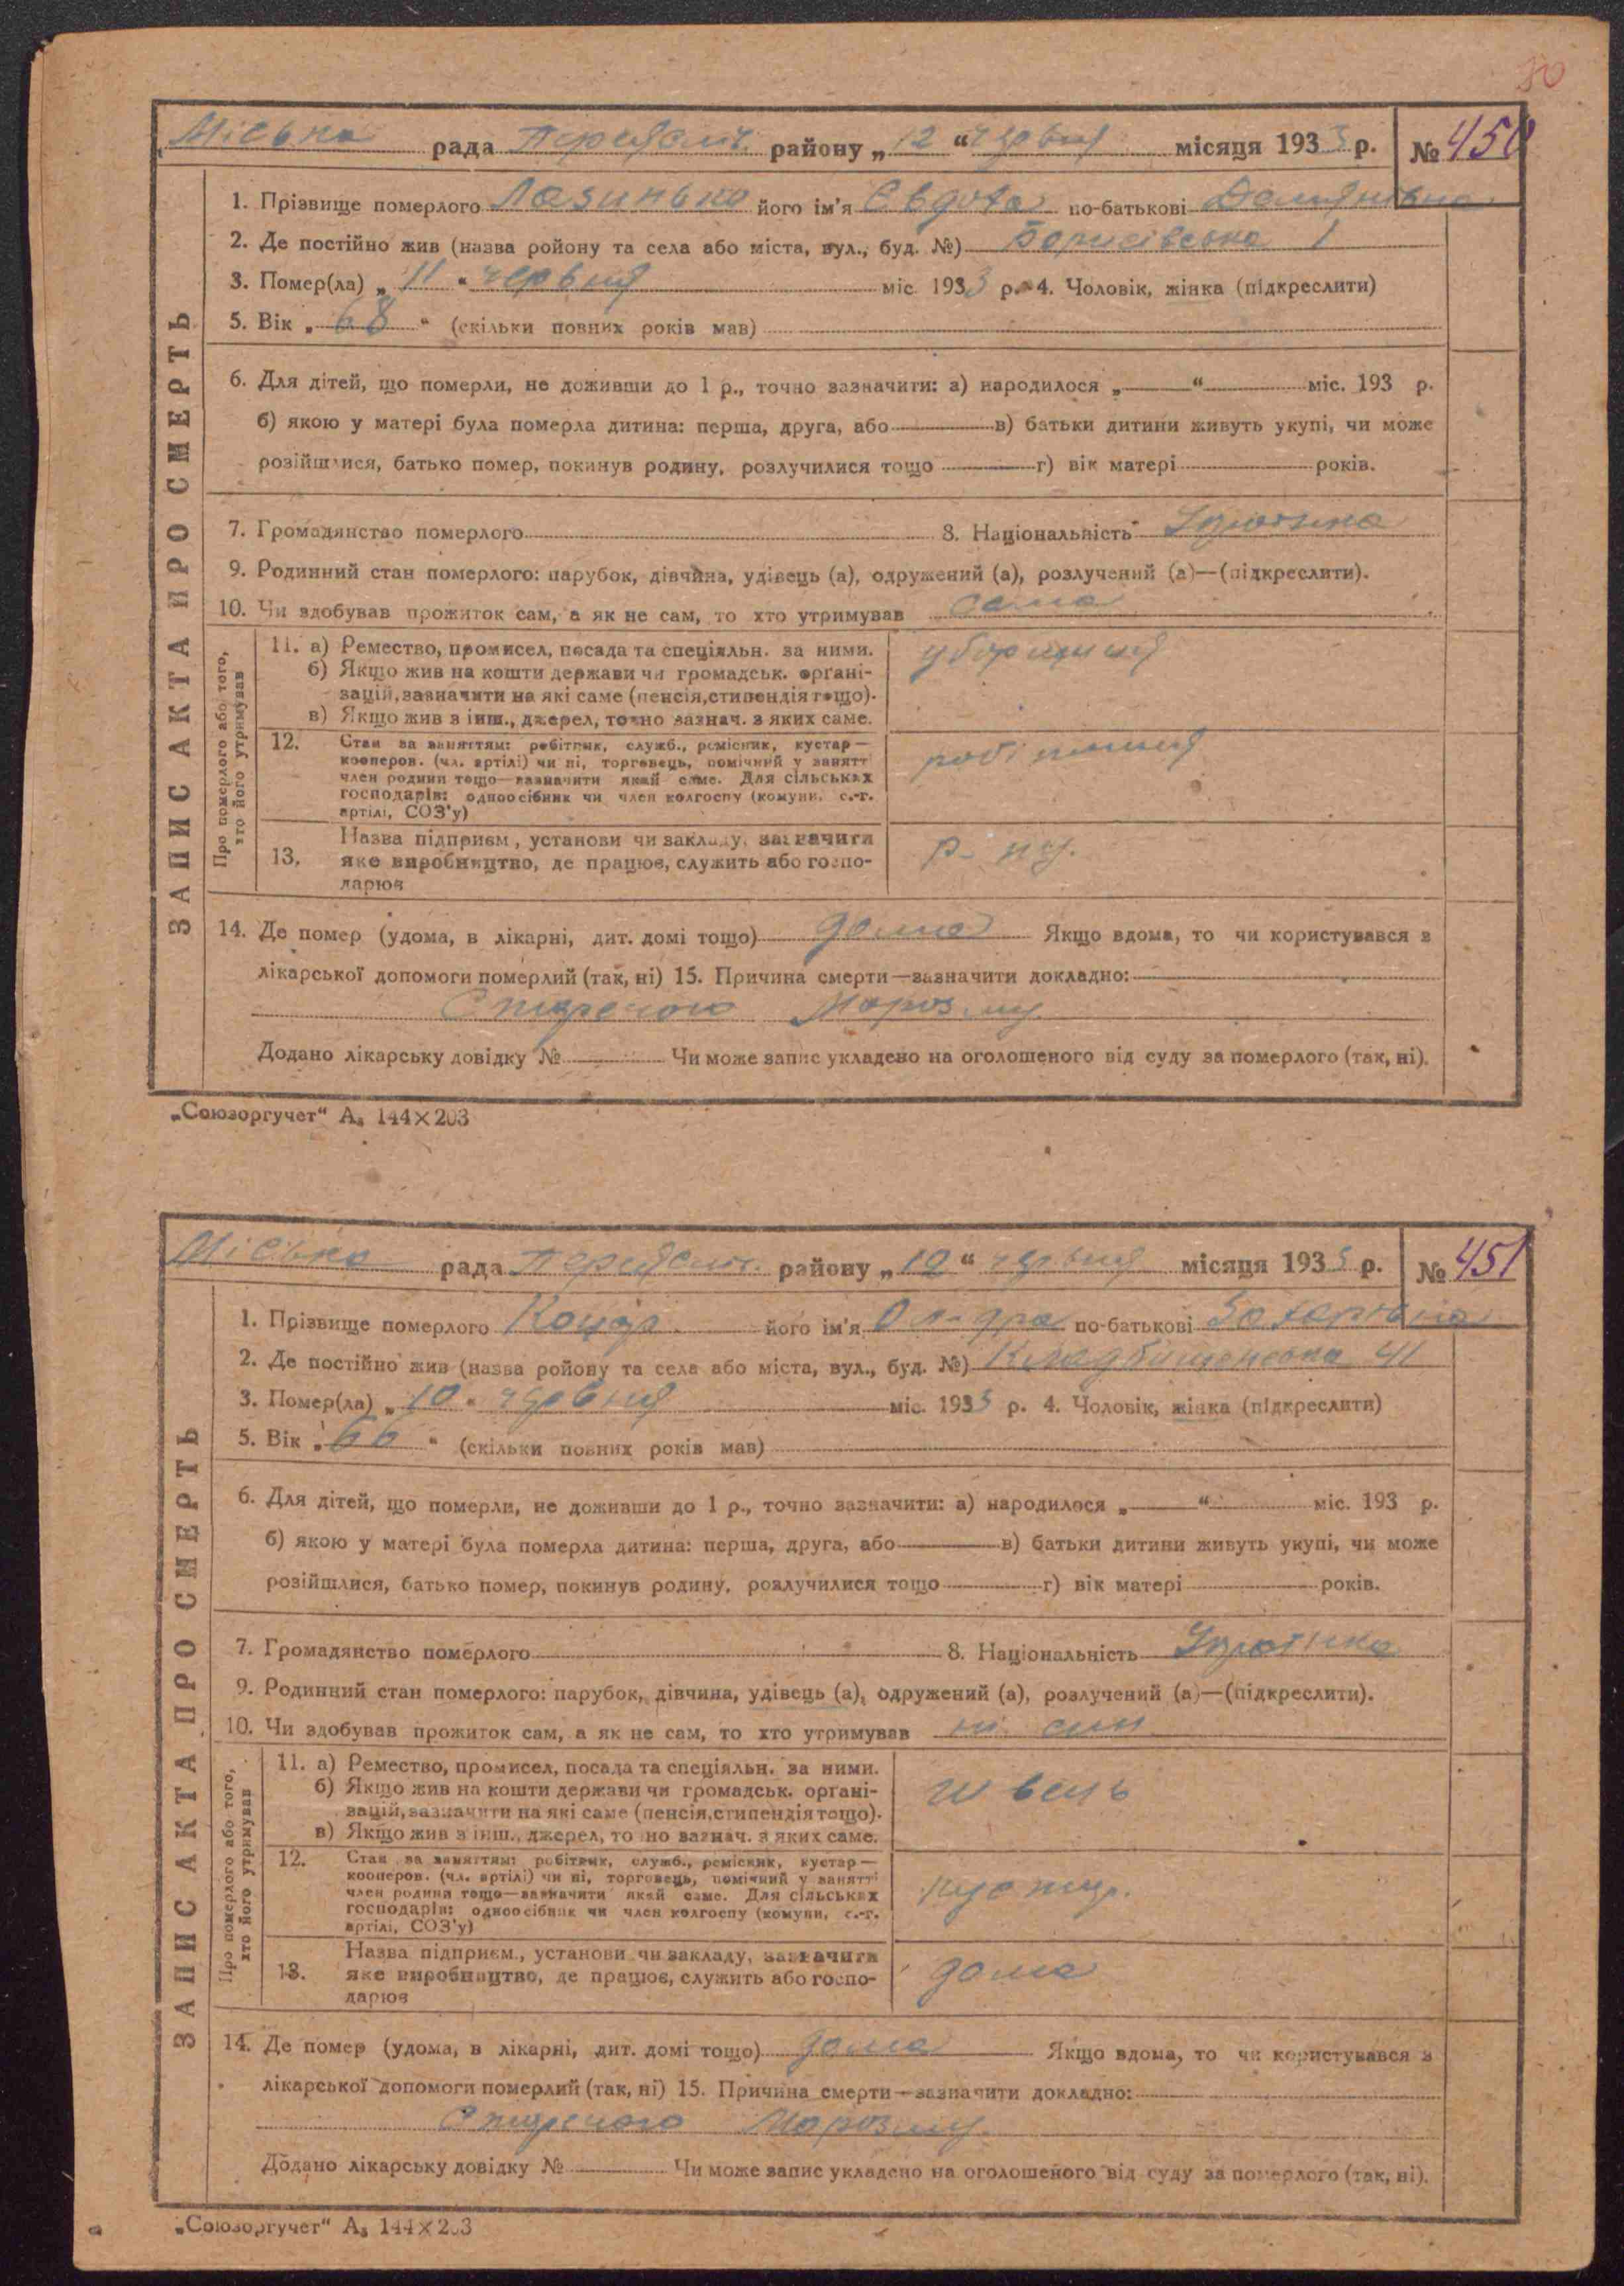 80
Міська рада Переяслч. району „12“ червня місяця 1933 р. № 450
1. Прізвище померлого Лазинька його ім'я Євдоха по-батькові Демянівна
2. Де постійно жив (назва ройону та села або міста, вул., буд. №) Борисівська 1
3. Помер(ла) „11“ червня міс. 1933 р. 4. Чоловік, жінка (підкреслити)
5. Вік „68“ (скільки повних років мав)
6. Для дітей, що померли, не доживши до 1 р., точно зазначити: а) народилося „ “ міс. 193 р.
б) якою у матері була померла дитина: перша, друга, або в) батьки дитини живуть укупі, чи може
розійшлися, батько помер, покинув родину, розлучилися тощо г) вік матері років.
7. Громадянство померлого 8. Національність Українка
9. Родинний стан померлого: парубок, дівчина, удівець (а), одружений (а), розлучений (а)—(підкреслити).
10. Чи здобував прожиток сам, а як не сам, то хто утримував сама
ЗАПИС АКТА ПРО СМЕРТЬ
Про померлого або того,
хто його утримував
11. а) Ремество, промисел, посада та спеціяльн. за ними. уборщиця
б) Якщо жив на кошти держави чи громадськ. орґані-
зацій, зазначити на які саме (пенсія, стипендія тощо).
в) Якщо жив з інш., джерел, точно зазнач. з яких саме.
12. Стан за заняттям: робітник, служб., ремісник, кустар— робітниця
кооперов. (чл. артілі) чи ні, торговець, помічний у занятті
член родини тощо—зазначити який саме. Для сільських
господарів: одноосібник чи член колгоспу (комуни, с.-г.
артілі, СОЗ'у)
13. Назва підприєм., установи чи закладу, зазначити
яке виробництво, де працює, служить або госпо-
дарює
14. Де помер (удома, в лікарні, дит. домі тощо) дома Якщо вдома, то чи користувався з
лікарської допомоги померлий (так, ні) 15. Причина смерти—зазначити докладно:
Старечого Маразму
Додано лікарську довідку № Чи може запис укладено на оголошеного від суду за померлого (так, ні).
„Союзоргучет“ А₅ 144×203
Міська рада Переяслч. району „12“ червня місяця 1933 р. № 451
1. Прізвище померлого Коцар його ім'я Ол-дра по-батькові Захарівна
2. Де постійно жив (назва ройону та села або міста, вул., буд. №) Кладбищенська 41
3. Помер(ла) „10“ червня міс. 1933 р. 4. Чоловік, жінка (підкреслити)
5. Вік „66“ (скільки повних років мав)
6. Для дітей, що померли, не доживши до 1 р., точно зазначити: а) народилося „ “ міс. 193 р.
б) якою у матері була померла дитина: перша, друга, або в) батьки дитини живуть укупі, чи може
розійшлися, батько помер, покинув родину, розлучилися тощо г) вік матері років.
7. Громадянство померлого 8. Національність Українка
9. Родинний стан померлого: парубок, дівчина, удівець (а), одружений (а), розлучений (а)—(підкреслити).
10. Чи здобував прожиток сам, а як не сам, то хто утримував ні син
ЗАПИС АКТА ПРО СМЕРТЬ
Про померлого або того,
хто його утримував
11. а) Ремество, промисел, посада та спеціяльн. за ними.
б) Якщо жив на кошти держави чи громадськ. орґані- швець
зацій, зазначити на які саме (пенсія, стипендія тощо).
в) Якщо жив з інш., джерел, то но зазнач. з яких саме.
12. Стан за заняттям: робітник, служб., ремісник, кустар—
кооперов. (чл. артілі) чи ні, торговець, помічний у занятті
член родини тощо—зазначити який саме. Для сільських кустар.
господарів: одноосібник чи член колгоспу (комуни, с.-г.
артілі, СОЗ'у)
13. Назва підприєм., установи чи закладу, зазначити
яке виробництво, де працює, служить або госпо- дома
дарює
14. Де помер (удома, в лікарні, дит. домі тощо) дома Якщо вдома, то чи користувався з
лікарської допомоги померлий (так, ні) 15. Причина смерти—зазначити докладно:
Старечого Маразму
Додано лікарську довідку № Чи може запис укладено на оголошеного від суду за померлого (так, ні).
„Союзоргучет“ А₅ 144×203